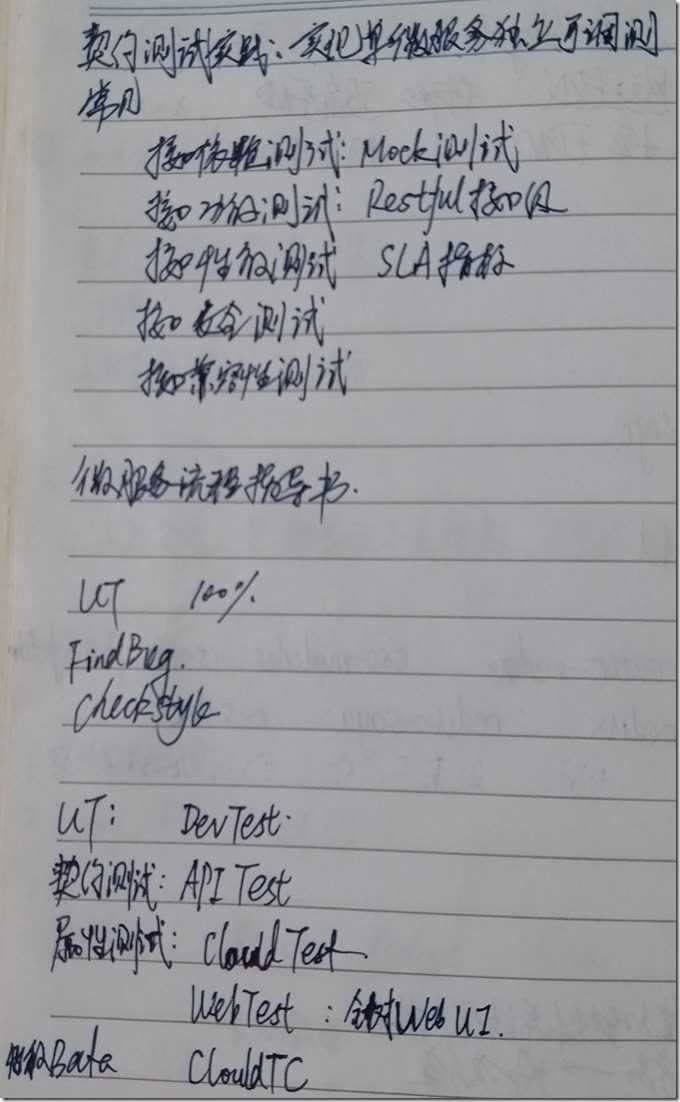 契约测试实践：实现单微服务独立可调测
常用
接口依赖测试：Mock测试
接口功能测试：Restful接口级
接口性能测试 SLA指标
接口安全测试
接口兼容性测试
微服务流程指导书.
UT 100%
FindBug.
checkstyle
UT： DevTest.
契约测试：API Test
属性测试：Clould Test
WebTest：针对Web UI.
性能Bata ClouldTC